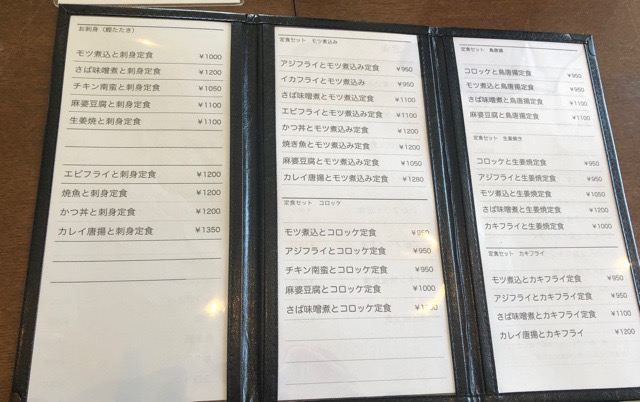 お刺身（鰹たたき）
モツ煮込と刺身定食 ¥1000
さば味噌煮と刺身定食 ¥1200
チキン南蛮と刺身定食 ¥1050
麻婆豆腐と刺身定食 ¥1100
生姜焼と刺身定食 ¥1100
エビフライと刺身定食 ¥1200
焼魚と刺身定食 ¥1200
かつ丼と刺身定食 ¥1200
カレイ唐揚と刺身定食 ¥1350
定食セット モツ煮込み
アジフライとモツ煮込み定食 ¥950
イカフライとモツ煮込み ¥950
さば味噌煮とモツ煮込定食 ¥1100
エビフライとモツ煮込み定食 ¥1100
かつ丼とモツ煮込み定食 ¥1200
焼き魚とモツ煮込み定食 ¥1200
麻婆豆腐とモツ煮込み定食 ¥1050
カレイ唐揚とモツ煮込み定食 ¥1280
定食セット コロッケ
モツ煮込とコロッケ定食 ¥950
アジフライとコロッケ定食 ¥950
チキン南蛮とコロッケ定食 ¥950
麻婆豆腐とコロッケ定食 ¥1000
さば味噌煮とコロッケ定食
定食セット 鳥唐揚
コロッケと鳥唐揚定食 ¥950
モツ煮込と鳥唐揚定食 ¥950
さば味噌煮と鳥唐揚定食 ¥1100
麻婆豆腐と鳥唐揚定食 ¥1100
定食セット 生姜焼き
コロッケと生姜焼定食 ¥950
アジフライと生姜焼定食 ¥950
モツ煮込と生姜焼定食 ¥1050
さば味噌煮と生姜焼定食 ¥1200
カキフライと生姜焼定食 ¥1000
定食セット カキフライ
モツ煮込とカキフライ定食 ¥950
アジフライとカキフライ定食 ¥950
さば味噌煮とカキフライ定食 ¥1100
カレイ唐揚とカキフライ ¥1200